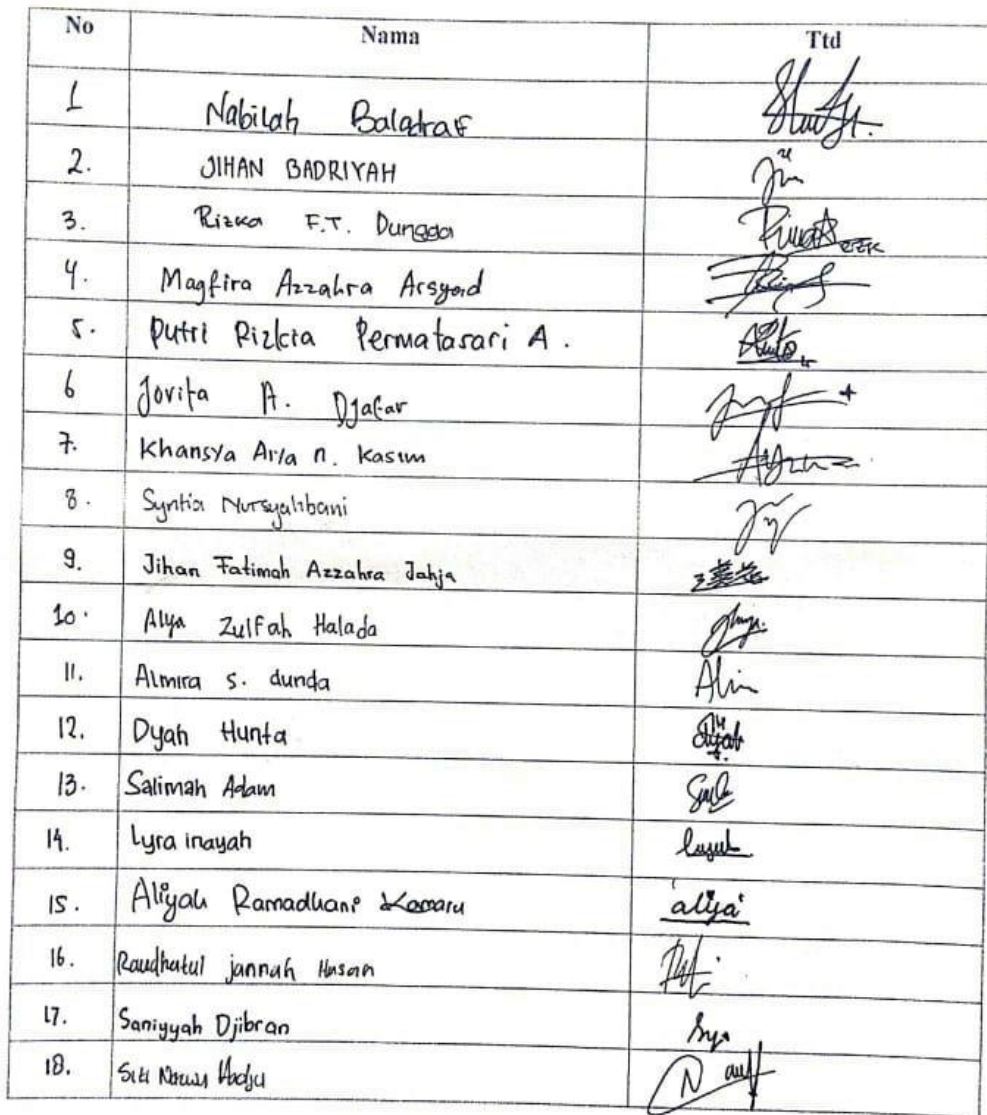 No Nama Ttd
1 Nabilah Baladraf
2. JIHAN BADRIYAH
3. Rizka F.T. Dungga
4. Magfira Azzahra Arsyad
5. Putri Rizkia Permatasari A.
6 Jovita A. Djafar
7. Khansya Arya n. Kasim
8. Syntia Nursyahbani
9. Jihan Fatimah Azzahra Jahja
10. Alya Zulfah Halada
11. Almira s. dunda Alm
12. Dyah Hunta dyah
13. Salimah Adam
14. Lyra inayah
15. Aliyah Ramadhani Kamaru 'aliya'
16. Raudhatul jannah Hasan
17. Saniyyah Djibran
18. Siti Hadju